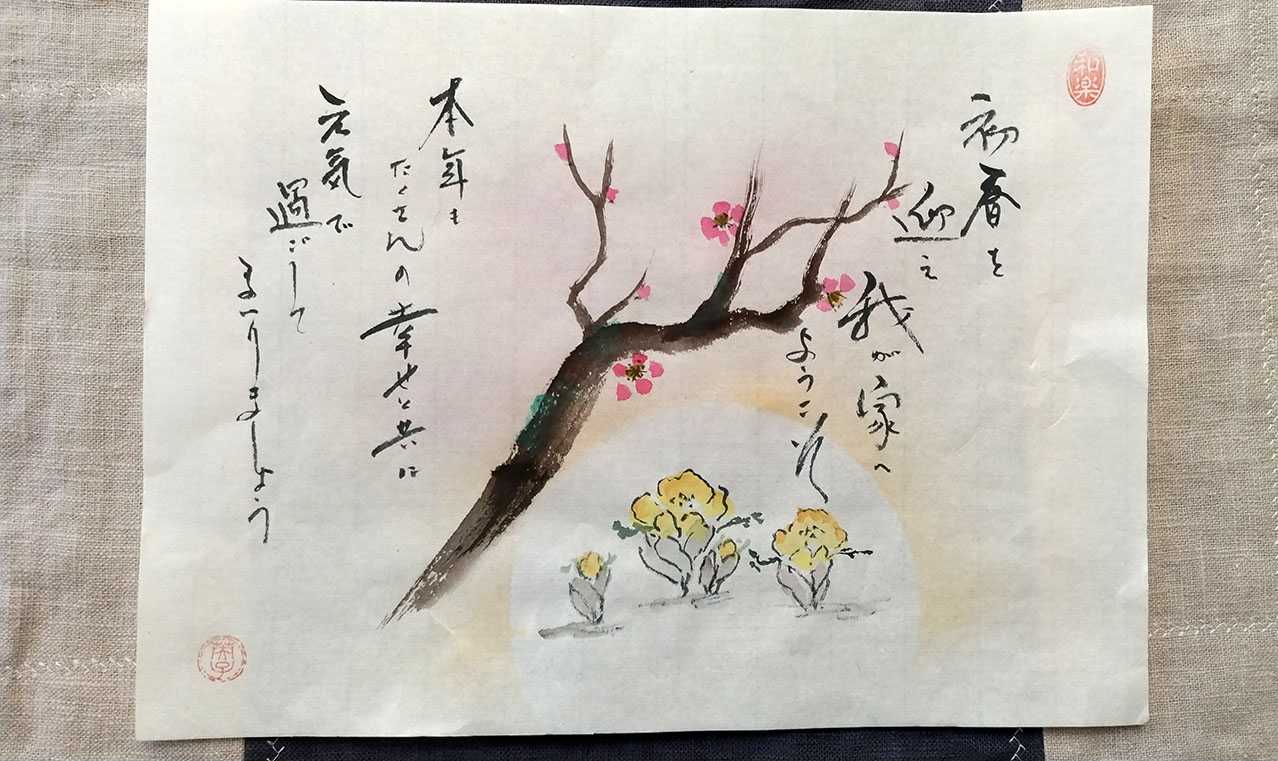 和楽
初春を
迎え
我が家へ
ようこそ
本年も
たくさんの幸せと共に
元気で
過ごして
まいりましょう